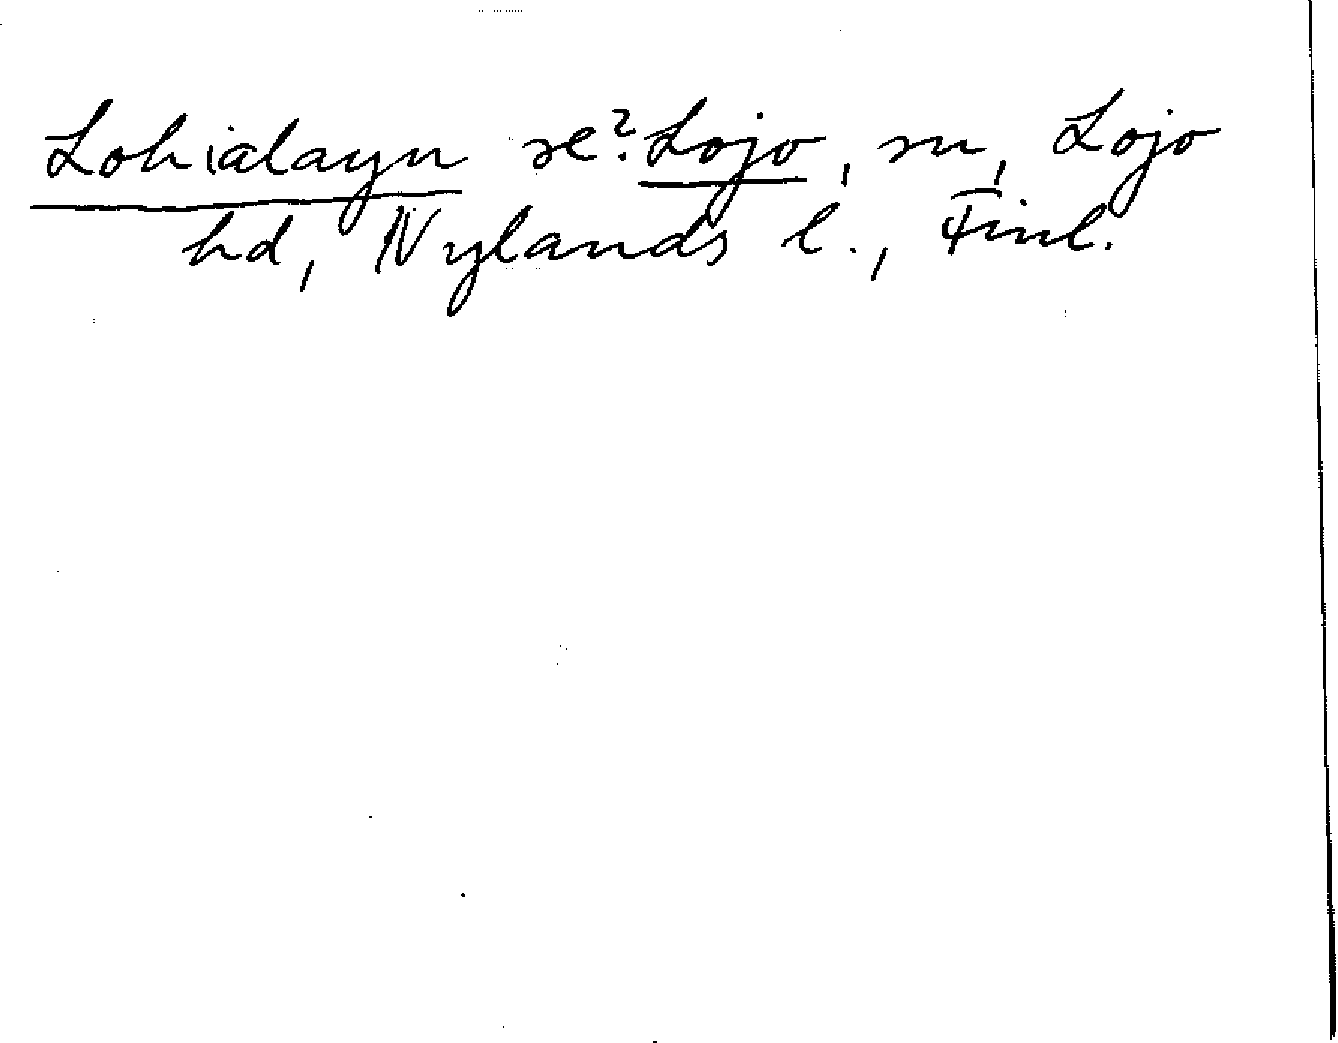 Lohialayn se? Lojo, sn, Lojo
hd, Nylands l., Finl.